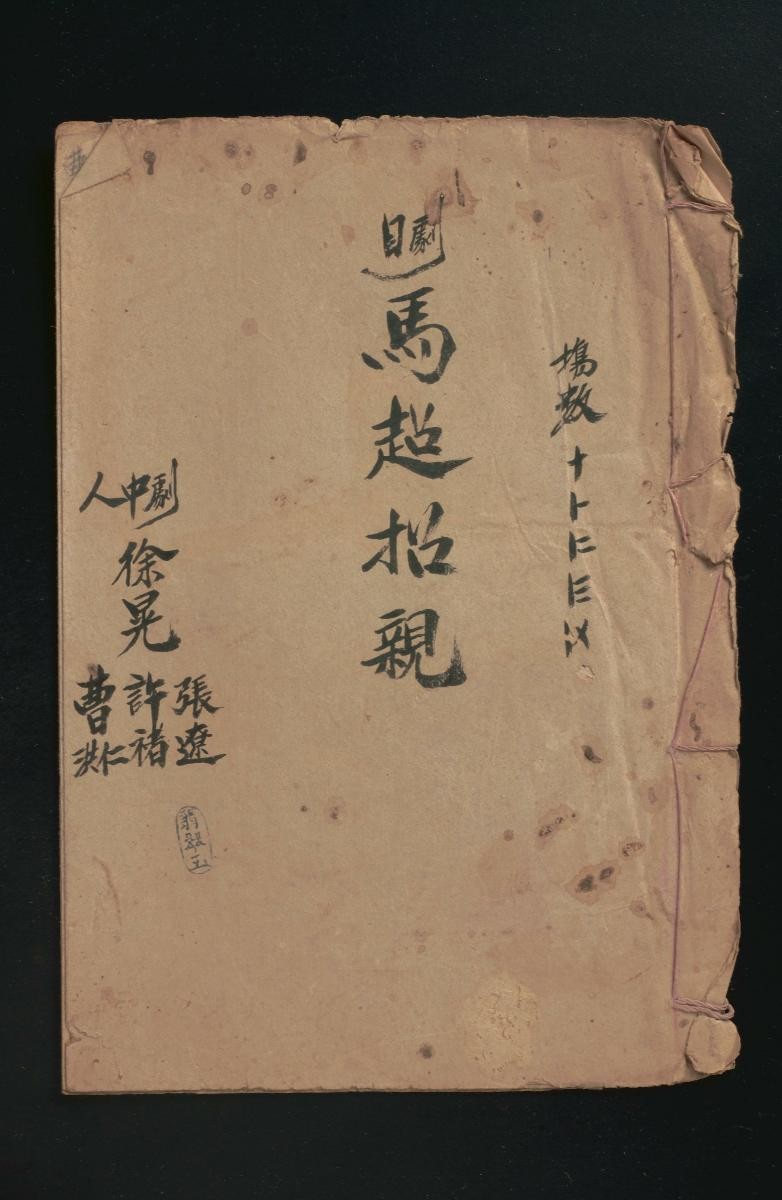 場數十卜仁彐㸚
劇目
馬超招親
劇中人
徐晃
張遼
許褚
曹洪仁
翡翠玉